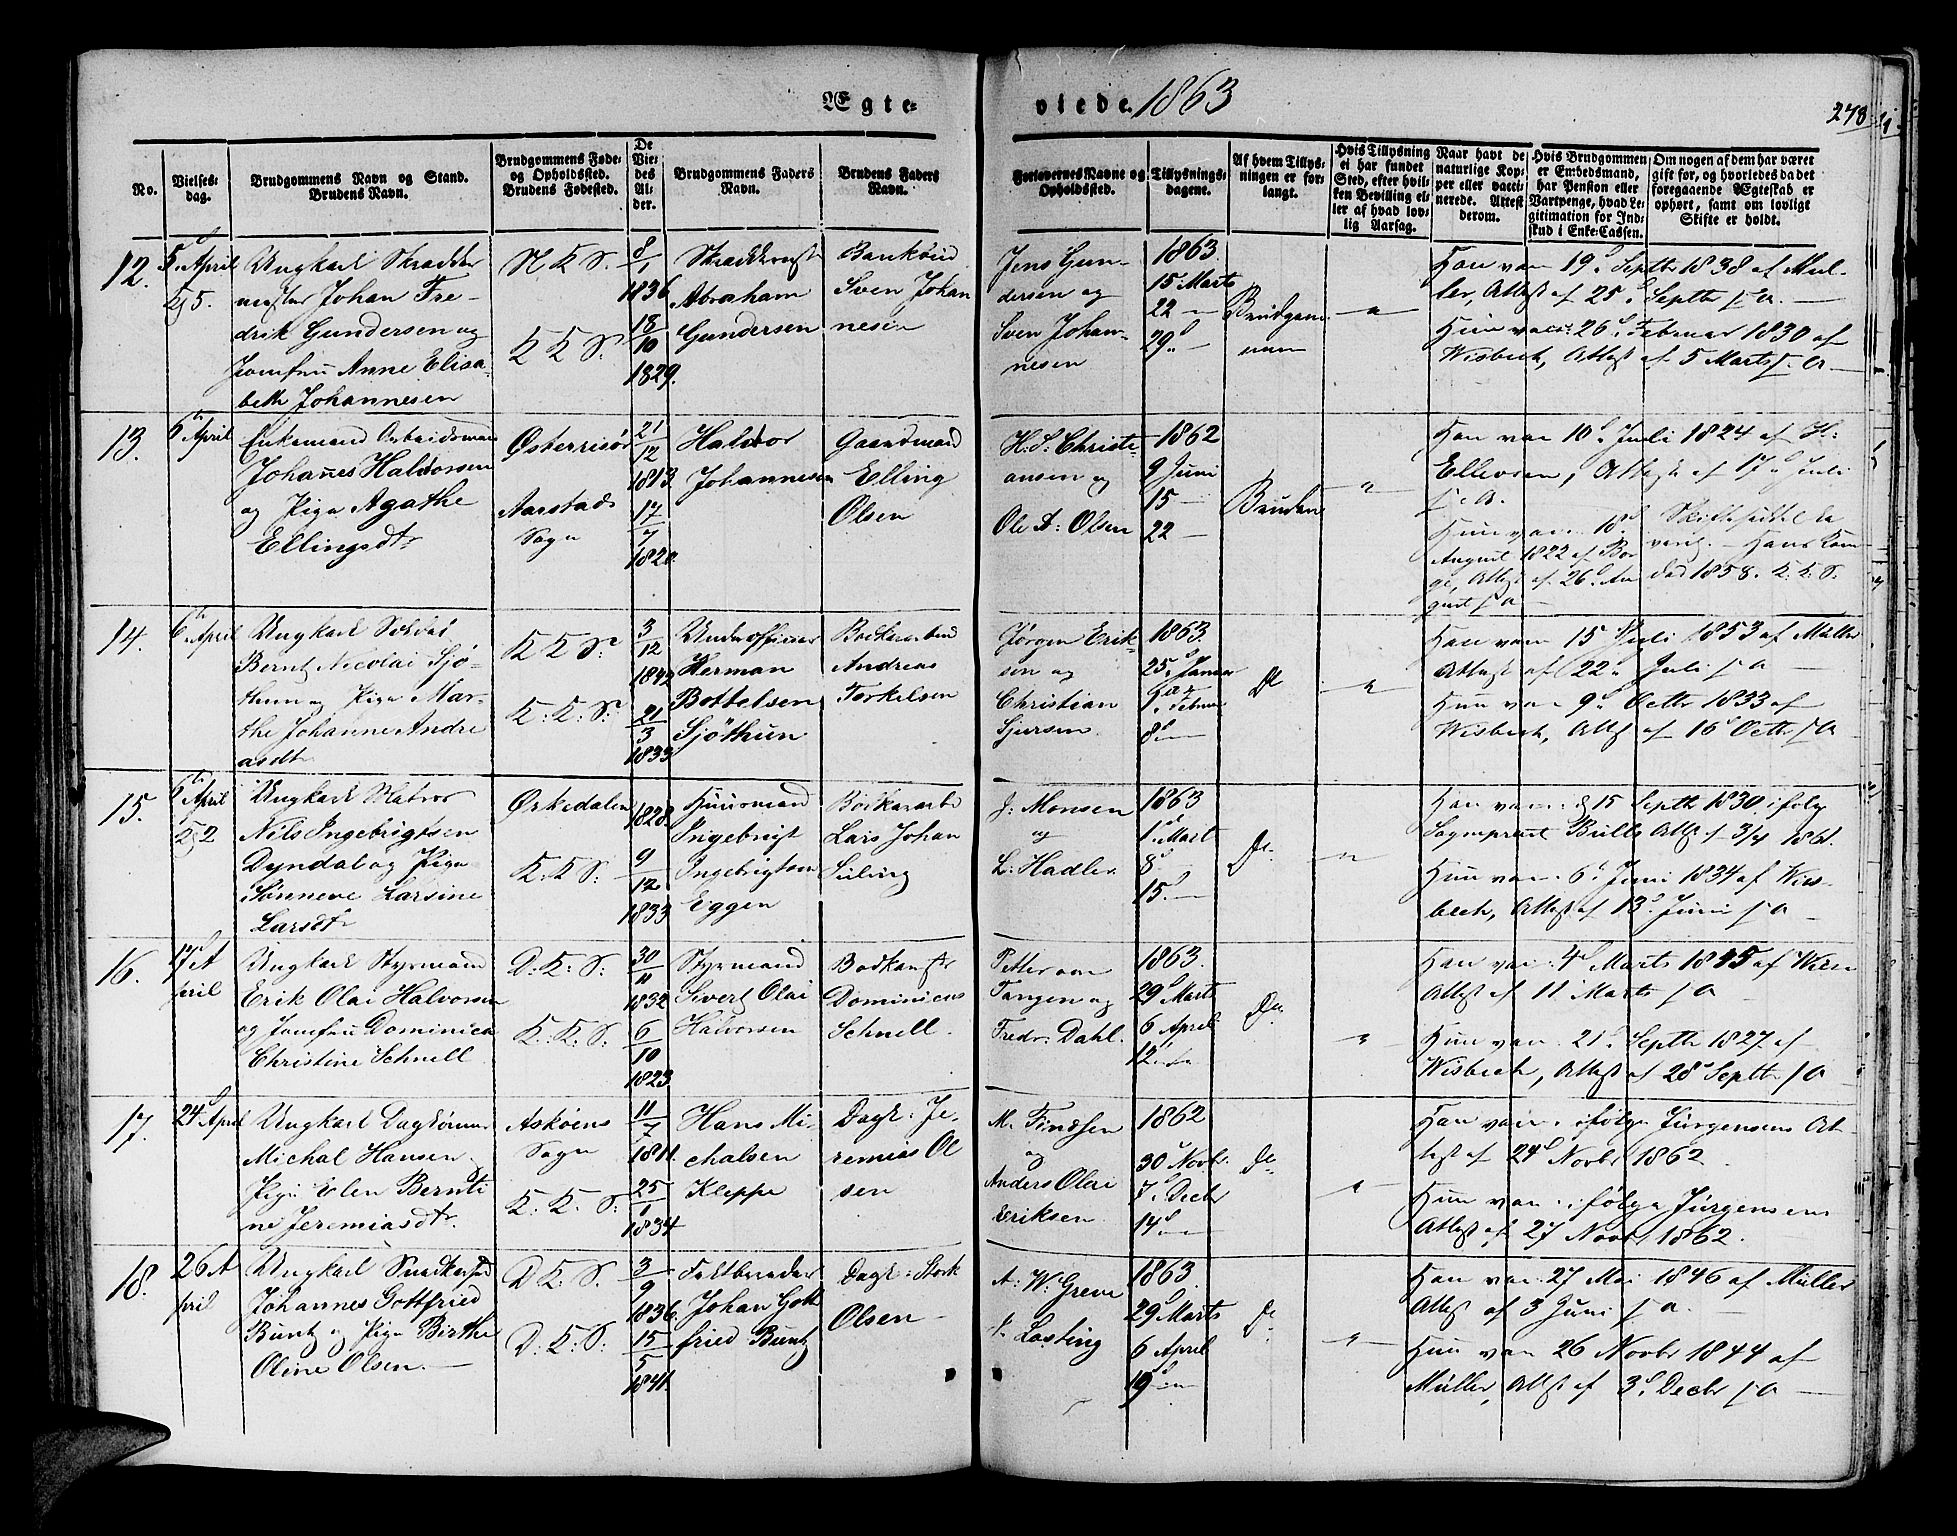 Ægte-
viede 1863
278
No.
Vielses-
dag.
Brudgommens Navn og Stand.
Brudens Navn.
Brudgommens Føde-
og Opholdssted.
Brudens Fødested.
De
Vie-
des
Al-
der.
Brudgommens Faders
Navn.
Brudens Faders
Navn.
Forlovernes Navne og
Opholdssted.
Tillysnings-
dagene.
Af hvem Tillys-
ningen er for-
langt.
Hvis Tillysning
ei har fundet
Sted, efter hvil-
ken Bevilling el-
ler af hvad lov-
lig Aarsag.
Naar havt de
naturlige Kop-
per eller vacci-
nerede. Attest
derom.
Hvis Brudgommen
er Embedsmand,
har Pension eller
Vartpenge, hvad Le-
gitimation for Ind-
skud i Enke-Cassen.
Om nogen af dem har været
gift før, og hvorledes da det
foregaaende Ægteskab er
ophørt, samt om lovligt
Skifte er holdt.
12.
5 April
Ungkarl Skrædder
mester Johan Fre-
drik Gundersen og
Jomfru Anne Elisa-
beth Johannesen
N K S.
K K S.
8/1
1836
18/10
1829.
Abraham
Gundersen
Sven Johan
nesen
Jens Gun-
dersen og
Sven Johan-
nesen
1863.
15 Marts
22 —
29 —
Brudgom-
men
Han vac 19 Septbr 1838 af Mul-
ler, Attest af 25 Septbr s. a. —
Hun vac 26 Februar 1830 af
Wisbech, Attest af 5 Marts s. a —
13.
6 April
Enkemand Arbeidsmand
Johannes Haldorsen
og Pige Agathe
Ellingsdtr
Østerrisør
Aarstads
Sogn
21/12
1813
17/7
1820.
Haldor
Johannesen
Gaardmand
Elling
Olsen
H. S. Christi-
ansen og
Ole A: Olsen
1862
9 Juni
15 —
22 —
Bruden
Han vac 10 Juli 1824 af H.
Ellevsen, Attest af 17 Juli
s. a.
Hun vac 18
August 1822 af Bor
ge, Attest af 26 Au
gust s a —
død 1858. K. K. S.
14.
6 April
Ungkarl Soldat
Bernt Nicolai Sjø-
thun og Pige Mar-
the Johanne Andre
asdtr
K K S:
K: K: S:
3/12
1842
21/3
1833
Underofficier
Herman
Bottelsen
Sjøthun
Bødkersvend
Andreas
Torkelsen
Jørgen Erik-
sen og
Christian
Sjursen
1863.
25 Januar
1 Februar
8 —
Do
Han vac 15 Juli 1853 af Müller
Attest af 22 Juli s a —
Hun vac 9 Octbr 1833 af
Wisbech, Attest af 16 Octbr s a
15.
6 April
Ungkarl Matros
Nils Ingebrigtsen
Dyndal og Pige
Sønneve Larsine
Larsdtr
Ørkedalen
K: K S:
1828.
9/12
1833
Huusmand
Ingebrigt
Ingebrigtsen
Eggen
Lars Johan
J. Monsen
og
L. Hadler
1863
1 Mart
8
15. —
Do.
Han vac. d 15 Septbr 1830 ifølge
Sognepræst Bulls Attst af 3/4 1861.
Hun vac. 6 Juni 1834 af Wis-
bech, Attest af 13 Juni s a —
16.
17 A
pril
Ungkarl Styrmand
Erik Olai Halvorsen
og Jomfru Dominica
Christine Schnell.
D. K: S:
K: K: S:
30/11
1832
6/10
1823
Styrmand
Sivert Olai
Halvorsen
Dominicus
Schnell.
Petter van
Tangen og
Fredr: Dahl.
1863.
29 Marts
6 April
12 —
Do.
Han vac. 4 Marts 1835 af Wien
Attest af 11 Marts s a —
Hun vac. 21 Septbr 1827 af
Wisbech, Attest af 28 Septbr s a
17.
24 April
Ungkarl Dagkörer
Michal Hansen
Pige Elen Bernti
ne Jeremiasdtr.
Askøens
Sogn
K: K: S:
11/7
1811.
25/1
1834
Hans Mi-
chalsen
Kleppe
Dagk: Je-
remias Ol
sen
M. Findsen
og
Anders Olai
Eriksen
1862
30 Novbr.
7 Decbr
14 —
Do
Han vac. ifølge Jürgensens At-
test af 24 Novbr 1862
Hun vac. ifølge Jürgensens
Attest af 27 Novbr 1862.
18.
26 A
pril
Ungkarl Snedkersvd
Johannes Gottfried
Buntz og Pige Birthe
Oline Olsen. —
D K: S.
D: K: S:
3/9
1836.
15/5
1841.
Feltbereder
Johan Gott
fried Buntz
Dagk: Stork
Olsen —
A: W: Greve
Losting
1863.
29 Marts
6 April
19 —
Do
Han vac. 27 Mai 1846 af Müller
Attest af 3 Juni s a. —
Hun vac 26 Novbr 1844 af
Müller, Attest af 3 Decbr s a —